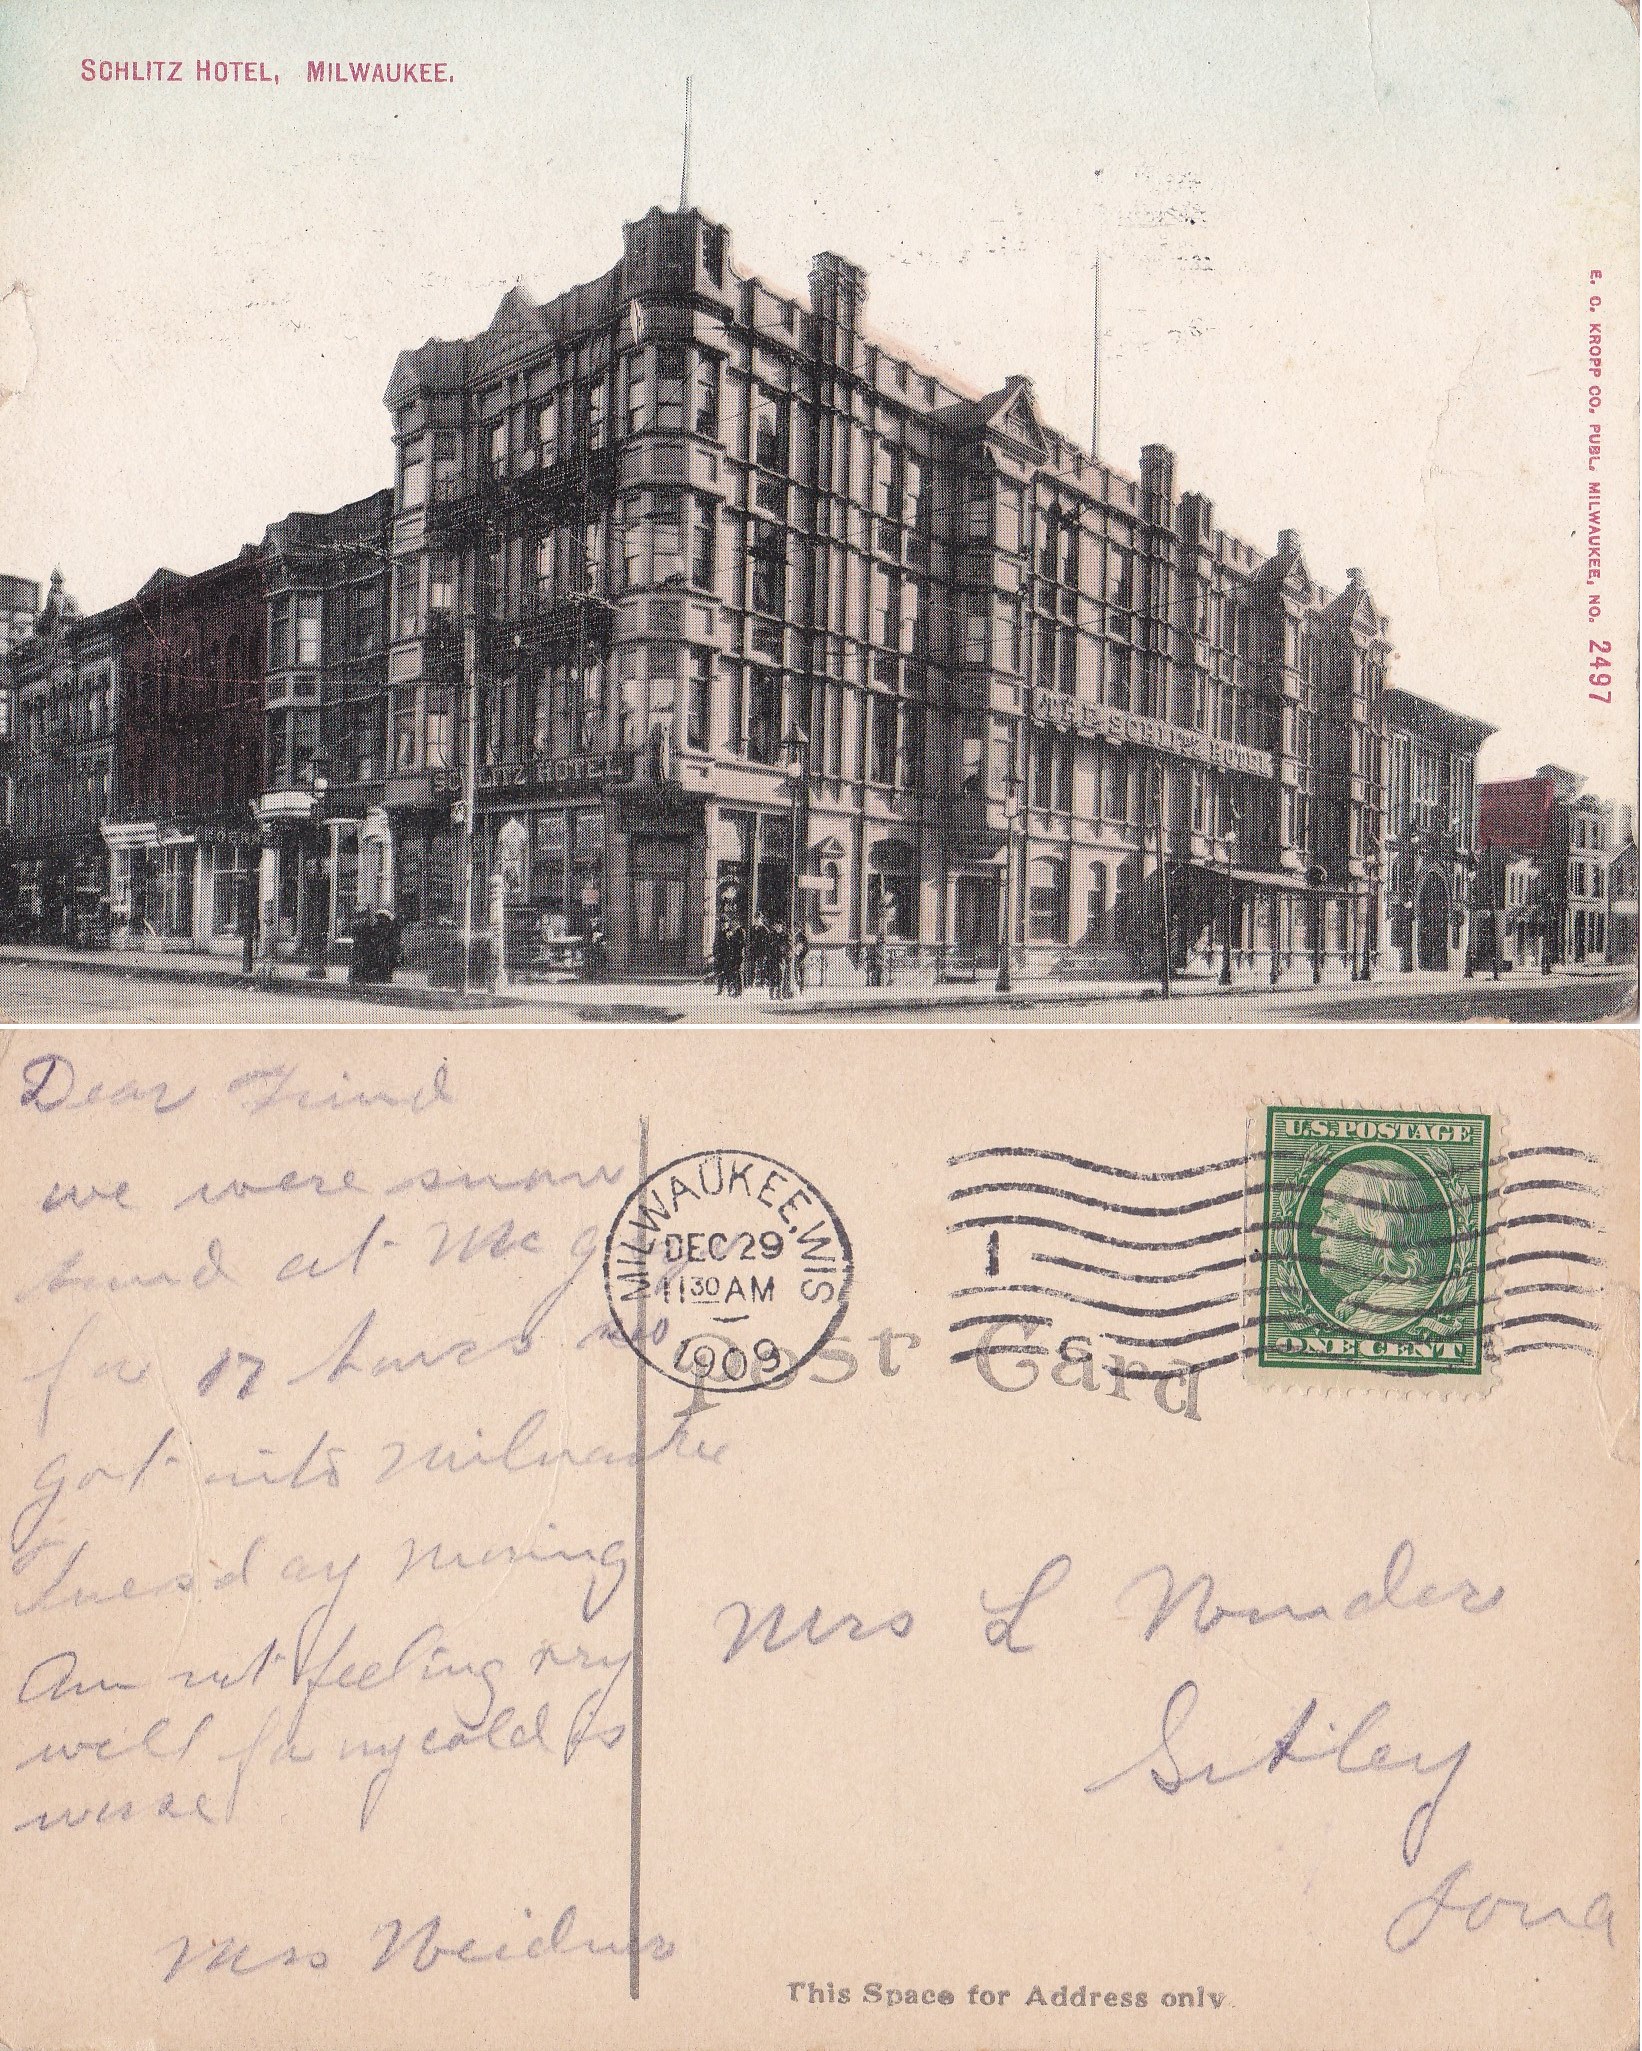 SCHLITZ HOTEL, MILWAUKEE.
E. C. KROPP CO. PUBL. MILWAUKEE, NO. 2497
THE SCHLITZ HOTEL
SCHLITZ HOTEL
Dear Friend
we were snow
bund at Mc
for 17 hours
got into Milwaukee
Tuesday morning
Am not feeling very
well for my cold is
worse
Mrs Weidner
MILWAUKEE, WIS
DEC 29
11 30 AM
1909
1
U.S. POSTAGE
ONE CENT
Post Card
Mrs L
Sibley
Iowa
This Space for Address only.